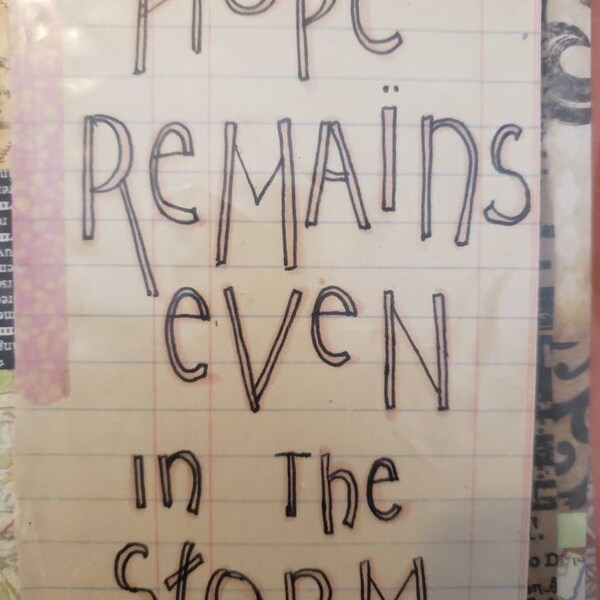 HOPE
REMAÏNS
eVeN
in The
STORM